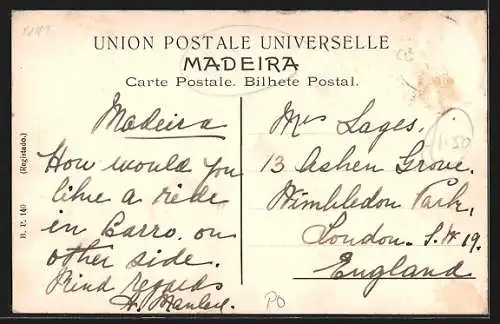 UNION POSTALE UNIVERSELLE
MADEIRA
Carte Postale. Bilhete Postal.
Madeira
How would you
like a ride
in Carro. on
other side.
Kind regards
Mrs Lages.
13 Ashen Grove.
Wimbledon Park,
London. S.W 19.
England
B. P. 140 (Registado.)
1.50